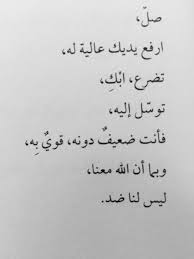 صلّ،
ارفع يديك عالية له،
تضرع، ابْكِ،
توسّل إليه،
فأنت ضعيفٌ دونه، قويٌ بِه،
وبما أن الله معنا،
ليس لنا ضد.